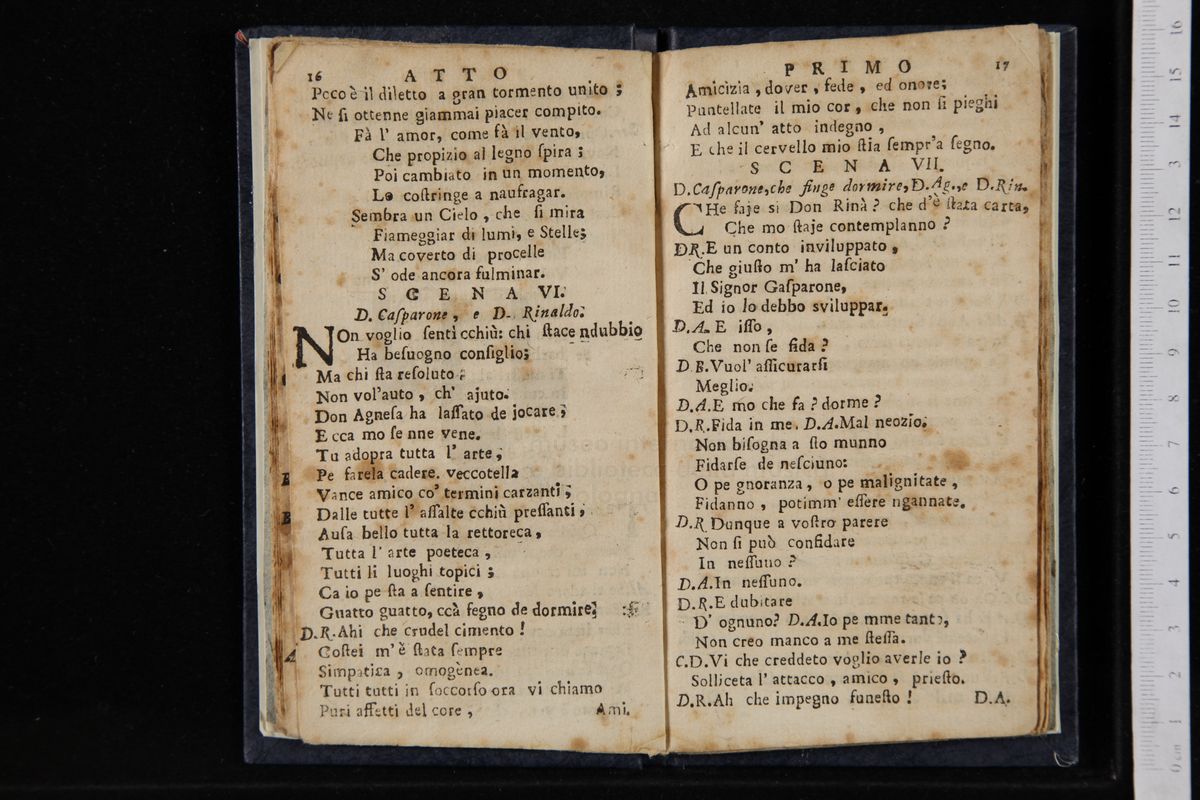 16 ATTO
Poco è il diletto a gran tormento unito ;
Ne ſi ottenne giammai piacer compito.
Fà l' amor, come fà il vento,
Che propizio al legno ſpira ;
Poi cambiato in un momento,
Lo coſtringe a naufragar.
Sembra un Cielo , che ſi mira
Fiameggiar di lumi, e Stelle;
Ma coverto di procelle
S' ode ancora fulminar.
SCENA VI.
D. Caſparone , e D. Rinaldo.
NOn voglio ſenti cchiù: chi ſtace ndubbio
Ha beſuogno conſiglio;
Ma chi ſta reſoluto ;
Non vol'auto , ch' ajuto.
Don Agneſa ha laſſato de jocare ;
E cca mo ſe nne vene.
Tu adopra tutta l' arte ;
Pe farela cadere. veccotella
Vance amico co' termini carzanti ;
Dalle tutte l' aſſalte cchiù preſſanti ;
Auſa bello tutta la rettoreca ,
Tutta l' arte poeteca ,
Tutti li luoghi topici ;
Ca io pe ſta a ſentire ,
Guatto guatto, ccà fegno de dormire.
D.R.Ahi che crudel cimento !
Coſtei m'è ſtata ſempre
Simpatica , omogènea.
Tutti tutti in ſoccorſo ora vi chiamo
Puri affetti del core ,
Ami.
PRIMO 17
Amicizia , dover , fede , ed onore;
Puntellate il mio cor , che non ſi pieghi
Ad alcun' atto indegno ,
E che il cervello mio ſtia ſempr'a ſegno.
SCENA VII.
D.Caſparone,che finge dormire,D.Ag.,e D.Rin.
CHe faje si Don Rinà ? che d'è ſtata carta,
Che mo ſtaje contemplanno ?
DR.E un conto inviluppato ,
Che giuſto m' ha laſciato
Il Signor Gaſparone,
Ed io lo debbo sviluppar.
D.A.E iſſo ,
Che non ſe fida ?
D.R.Vuol' aſſicurarſi
Meglio.
D.A.E mo che fa ? dorme ?
D.R.Fida in me. D.A.Mal neozio.
Non biſogna a ſto munno
Fidarſe de neſciuno:
O pe gnoranza , o pe malignitate ,
Fidanno , potimm' eſſere ngannate.
D.R.Dunque a voſtro parere
Non ſi può confidare
In neſſuno ?
D.A.In neſſuno.
D.R.E dubitare
D' ognuno? D.A.Io pe mme tanto,
Non creo manco a me ſteſſa.
C.D.Vi che creddeto voglio averle io ?
Solliceta l' attacco , amico , prieſto.
D.R.Ah che impegno funeſto !
D.A.